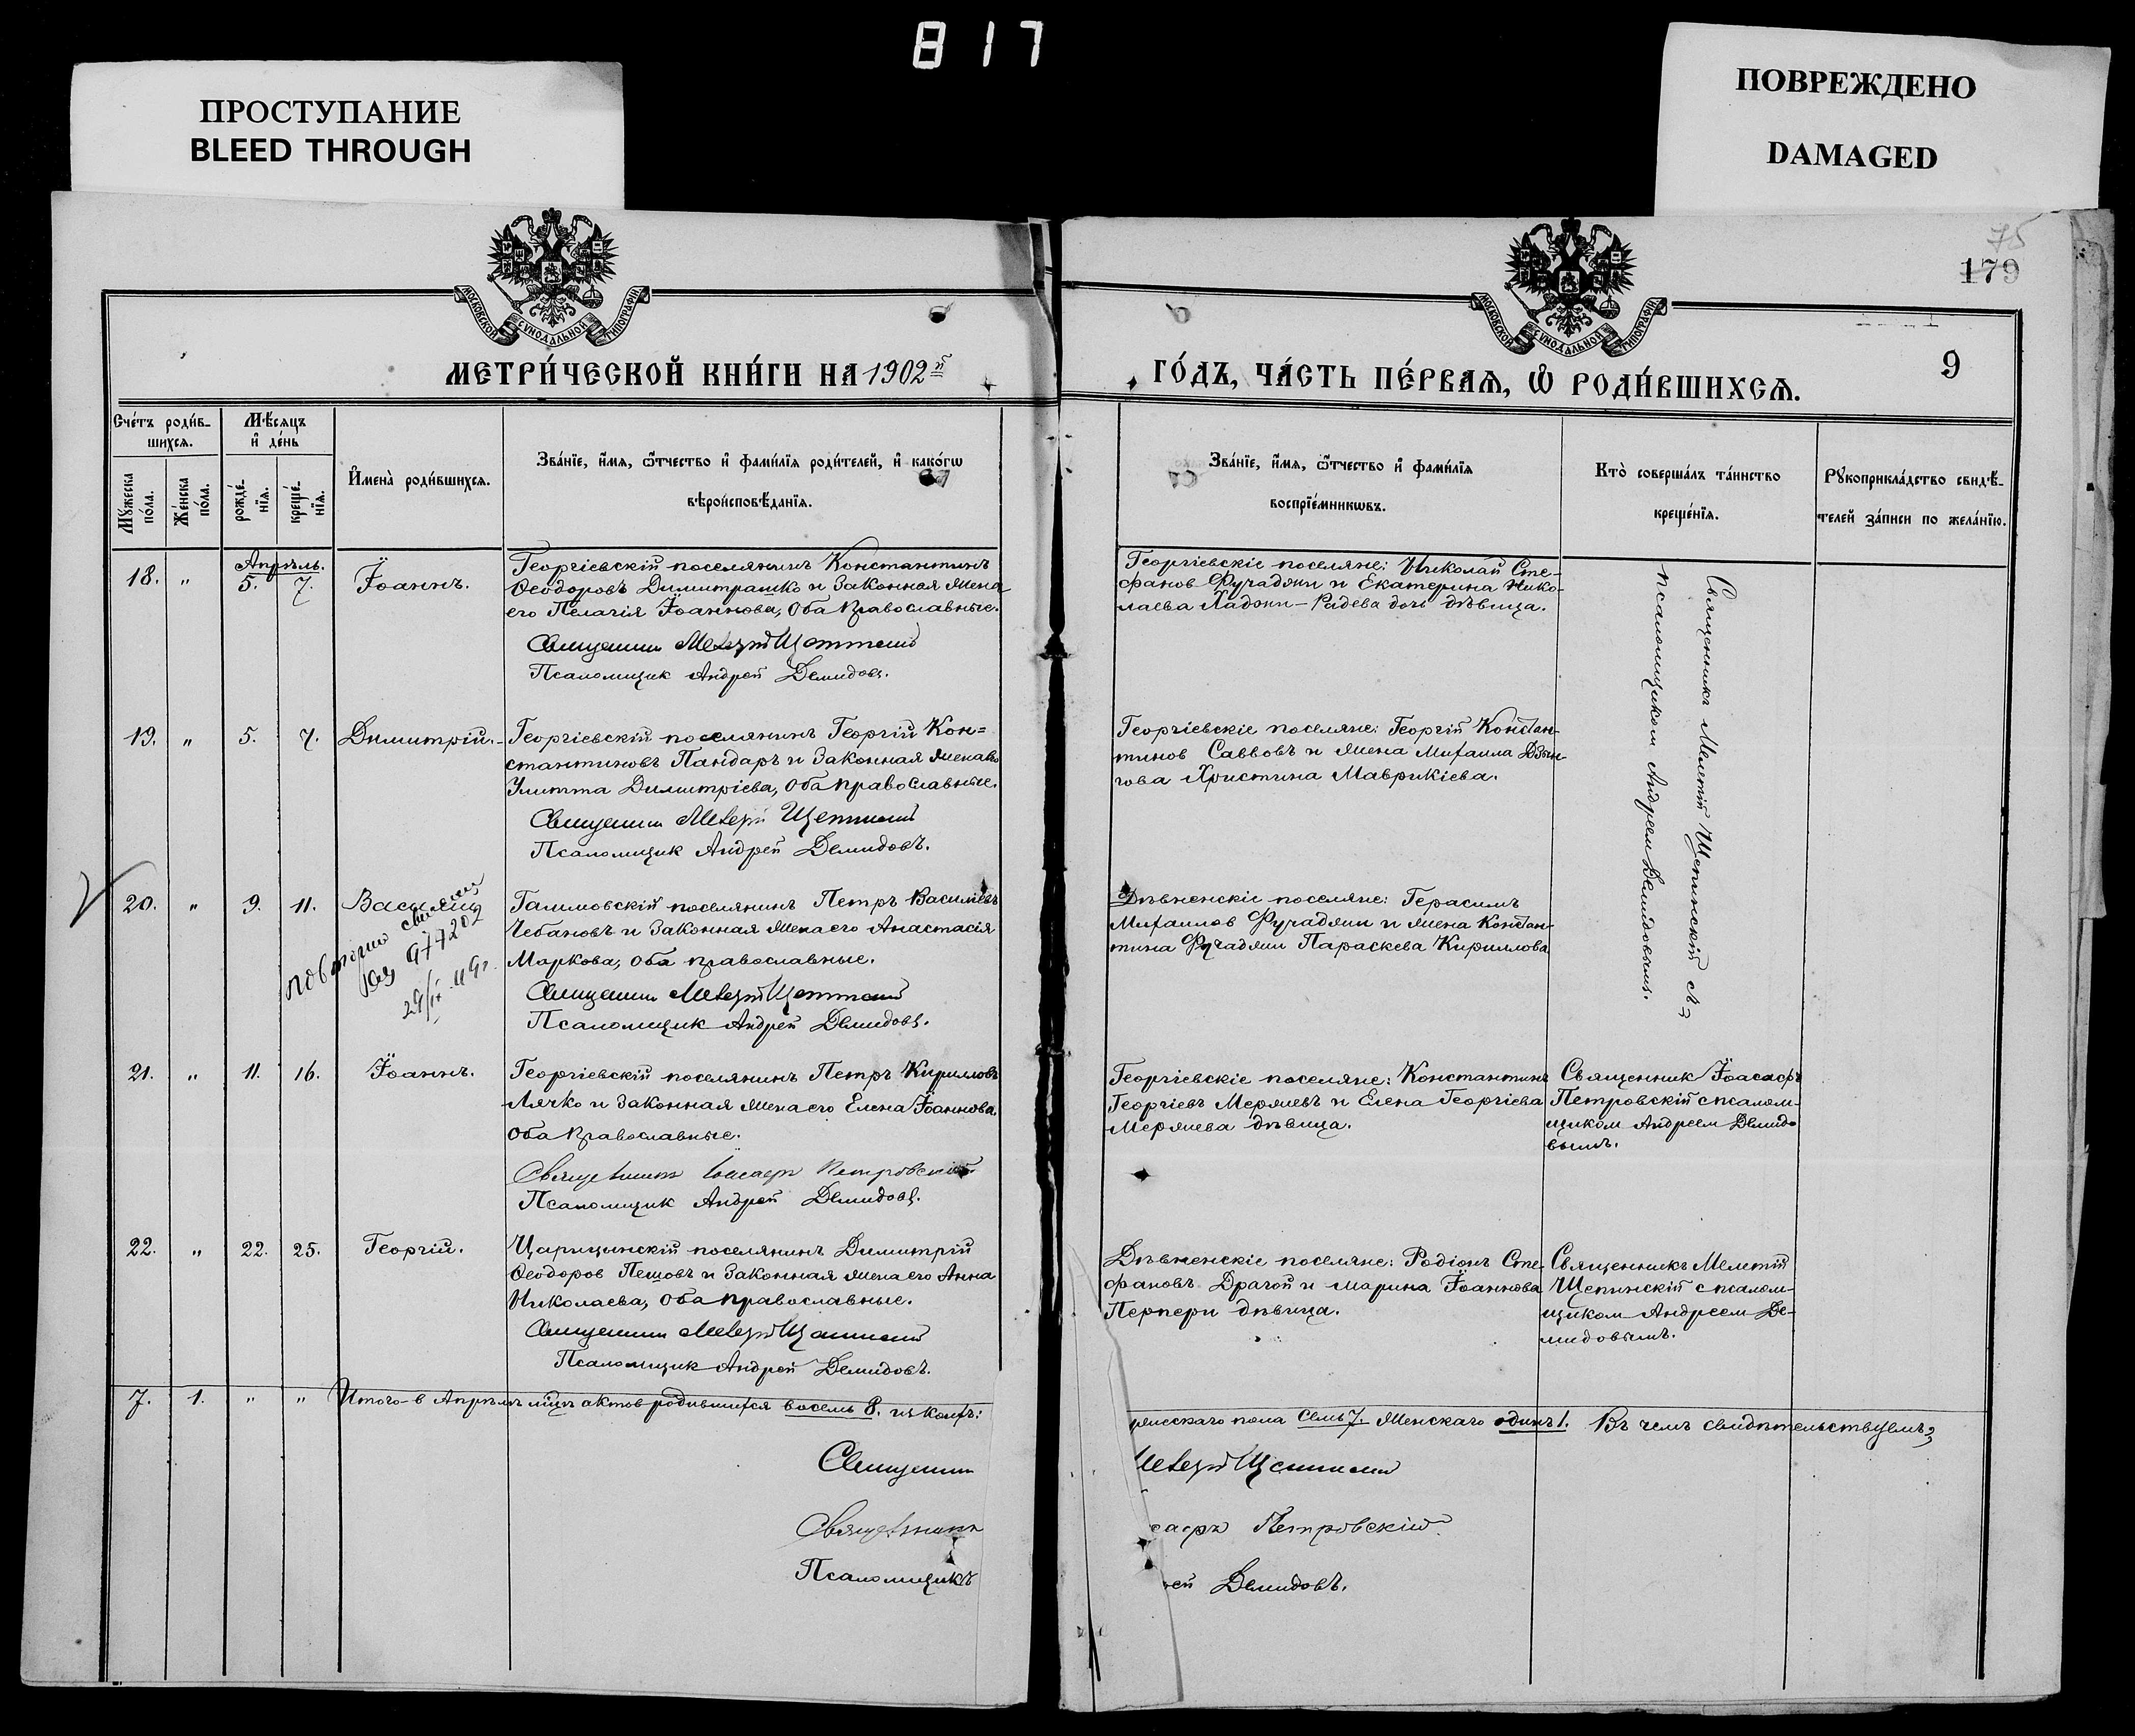 817
ПРОСТУПАНИЕ
BLEED THROUGH
ПОВРЕЖДЕНО
DAMAGED
75
179
9
МОСКОВСКОЙ СѴНОДАЛЬНОЙ ТИПОГРАФІИ
МОСКОВСКОЙ СѴНОДАЛЬНОЙ ТИПОГРАФІИ
МЕТРИ́ЧЕСКОЙ КНИ́ГИ НА 1902й
ГО́ДЪ, ЧА́СТЬ ПЕ́РВАѦ, Ѡ҆ РОДИ́ВШИХСѦ.
Сче́тъ роди́в-
шихся.
Мꙋ́жеска по́ла.
Же́нска по́ла.
Мѣ́сяцъ
и҆ де́нь
рожде́-
нїя.
креще́-
нїя.
И҆мена̀ роди́вшихся.
Зва́нїе, и҆́мя, ѻ҆́тчество и҆ фами́лїя роди́телей, и҆ како́гѡ
вѣроисповѣ́данїя.
Зва́нїе, и҆́мя, ѻ҆́тчество и҆ фами́лїя
воспрїе́мникѡвъ.
Кто̀ соверша́лъ та́инство
креще́нїя.
Рꙋкоприкла́дство свидѣ́-
телей за́писи по жела́нїю.
Апрѣль.
18. " 5. 7. Іоаннъ.
Георгіевскій поселянинъ Константинъ
Ѳеодоровъ Димитрашко и законная жена
его Пелагія Іоаннова, оба православные.
Священникъ Мелетій Щепинскій
Псаломщик Андрей Демидовъ.
Георгіевскіе поселяне: Николай Сте-
фанов Фучаджи и Екатерина Нико-
лаева Хаджи-Радева дочь дѣвица.
Священникъ Мелетій Щепинскій съ
псаломщиком Андреем Демидовымъ.
19. " 5. 7. Димитрій.
Георгіевскій поселянинъ Георгій Кон=
стантиновъ Пандаръ и законная жена его
Улитта Димитріева, оба православные.
Священникъ Мелетій Щепинскій
Псаломщик Андрей Демидовъ.
Георгіевскіе поселяне: Георгій Констан-
тинов Саввовъ и жена Михаила
Христина Маврикіева.
20. " 9. 11. Василій
повторно
97720
29/IX
Петръ Васильевъ
Чебановъ и законная жена его Анастасія
Маркова, оба православные.
Священникъ Мелетій Щепинскій
Псаломщик Андрей Демидовъ.
Дѣвненскіе поселяне: Герасимъ
Михаилов Фучаджи и жена Констан-
тина Фучаджи Параскева Кириллова
21. " 11. 16. Іоаннъ.
Георгіевскій поселянинъ Петръ Кирилловъ
Лячко и законная жена его Елена Іоаннова,
оба православные.
Священникъ Іоасафъ Петровскій.
Псаломщик Андрей Демидовъ.
Георгіевскіе поселяне: Константинъ
Георгіевъ Мержиевъ и Елена Георгіева
Мержиева дѣвица.
Священник Іоасафъ
Петровскій с псалом-
щиком Андреем Демидо-
вымъ.
22. " 22. 25. Георгій.
Царицынскій поселянинъ Димитрій
Ѳеодоров Пешовъ и законная жена его Анна
Николаева, оба православные.
Священникъ Мелетій Щепинскій
Псаломщик Андрей Демидовъ.
Дѣвненскіе поселяне: Родіонъ Сте-
фановъ Драгой и Марина Іоаннова
Перпери дѣвица.
Священникъ Мелетій
Щепинскій с псалом-
щиком Андреем Де-
мидовымъ.
7. 1. " " Итого в Апрѣлѣ мцѣ актов родившихся восемь 8. изъ коихъ:
жескаго пола семь 7. женскаго одинъ 1. Въ чемъ свидѣтельствуемъ:
Священникъ Мелетій Щепинскій
Священникъ сафъ Петровскій.
Псаломщикъ рей Демидовъ.